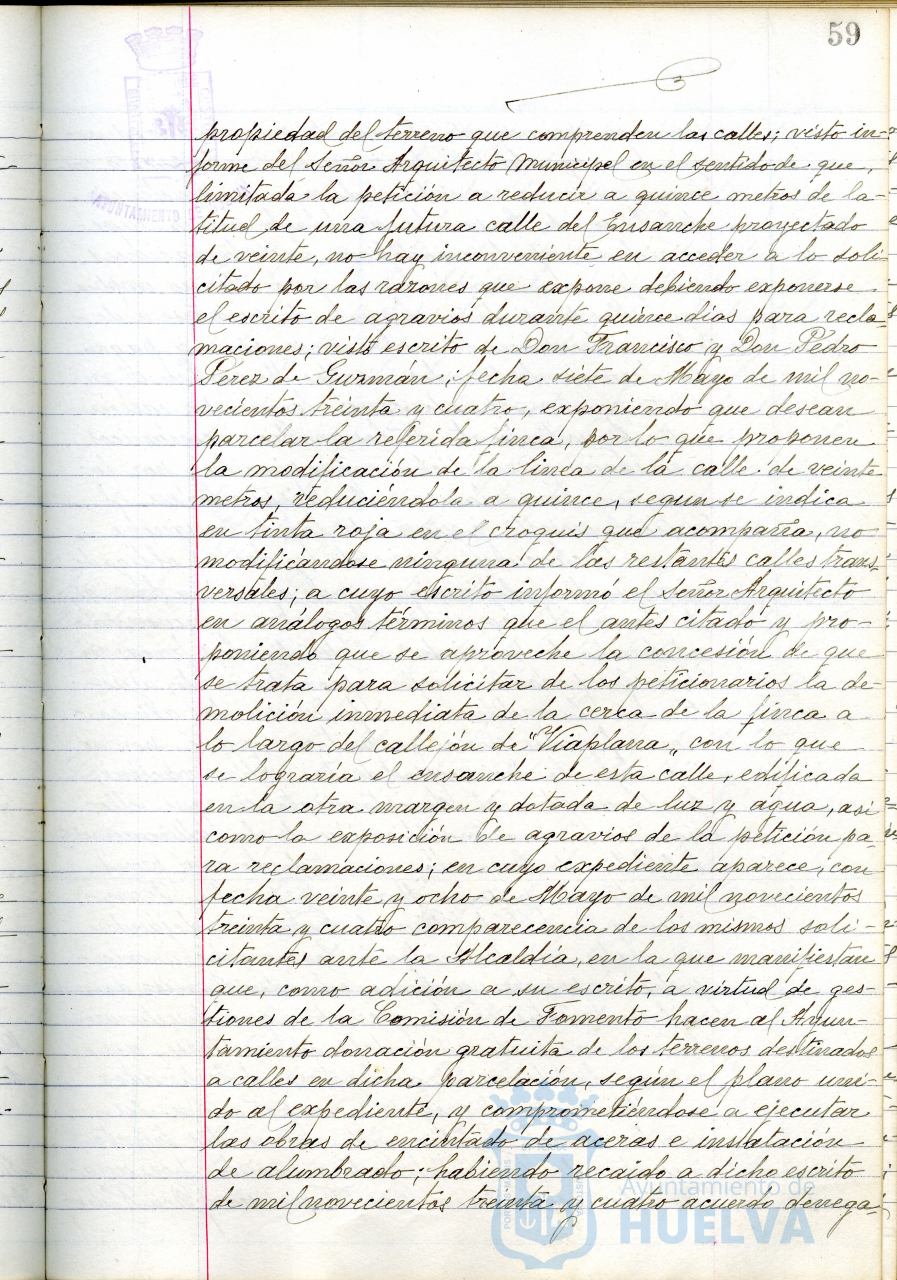 59
propiedad del terreno que comprenden las calles; visto in-
forme del Señor Arquitecto Municipal en el sentido de que,
limitada la petición a reducir a quince metros de la-
titud de una futura calle del Ensanche proyectado
de veinte, no hay inconveniente en acceder a lo soli-
citado por las razones que expone debiendo exponerse
el escrito de agravios durante quince dias para recla-
maciones; visto escrito de Don Francisco y Don Pedro
Pérez de Guzmán, fecha siete de Mayo de mil no-
vecientos treinta y cuatro, exponiendo que desean
parcelar la referida finca, por lo que proponen
la modificación de la linea de la calle de veinte
metros, reduciéndola a quince, segun se indica
en tinta roja en el croquis que acompaña, no
modificándose ninguna de las restantes calles trans-
versales; a cuyo escrito informó el Señor Arquitecto
en análogos términos que el antes citado y pro-
poniendo que se aproveche la concesión de que
se trata para solicitar de los peticionarios la de-
molición inmediata de la cerca de la finca a
lo largo del callejón de "Viaplana" con lo que
se lograría el ensanche de esta calle, edificada
en la otra margen y dotada de luz y agua, asi
como la exposición de agravios de la petición pa-
ra reclamaciones; en cuyo expediente aparece, con
fecha veinte y ocho de Mayo de mil novecientos
treinta y cuatro comparecencia de los mismos soli-
citantes ante la Alcaldía, en la que manifiestan
que, como adición a su escrito, a virtud de ges-
tiones de la Comisión de Fomento hacen al Ayun-
tamiento donación gratuita de los terrenos destinados
a calles en dicha parcelación, según el plano uni-
do al expediente, y comprometiéndose a ejecutar
las obras de encintado de aceras e instalación
de alumbrado; habiendo recaido a dicho escrito
de mil novecientos treinta y cuatro acuerdo denega-
Ayuntamiento de
HUELVA